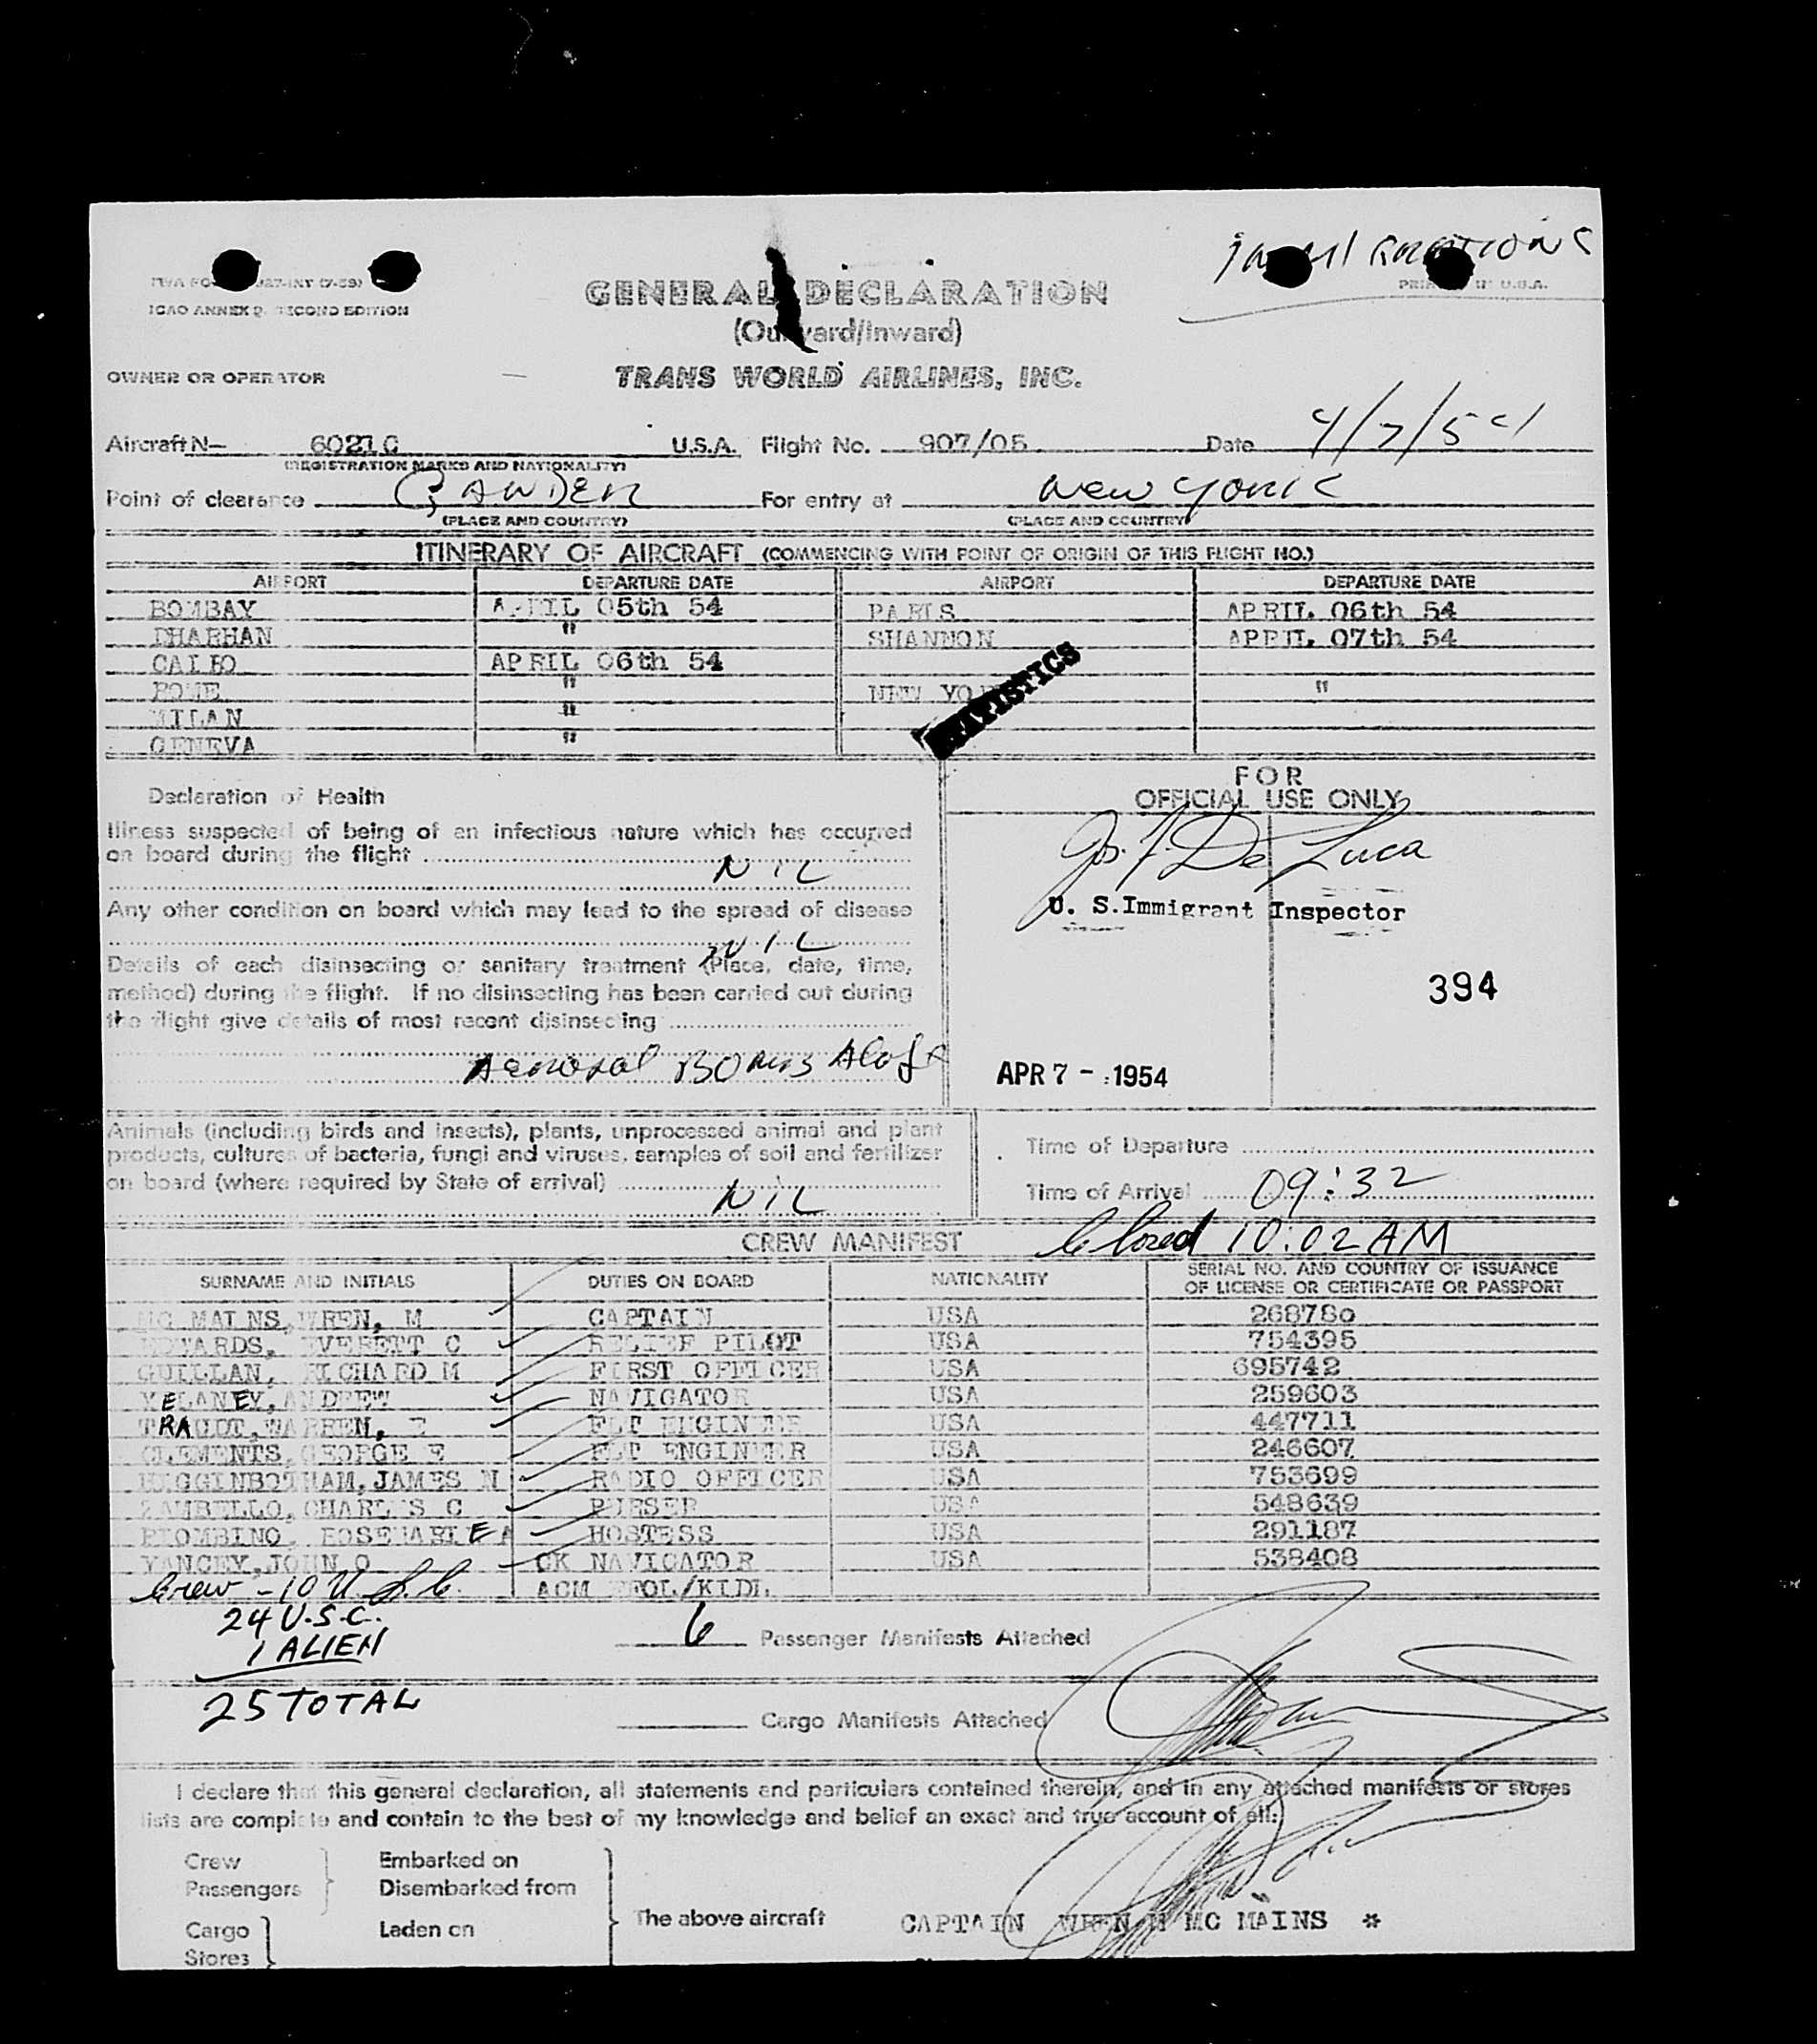 ICAO ANNEX 9, SECOND EDITION
PRINTED IN U.S.A.
GENERAL DECLARATION
(Outward/Inward)
OWNER OR OPERATOR
TRANS WORLD AIRLINES, INC.
Aircraft N- 6021C U.S.A. Flight No. 907/05 Date 4/7/54
(REGISTRATION MARKS AND NATIONALITY)
Point of clearance GANDER For entry at New York
(PLACE AND COUNTRY) (PLACE AND COUNTRY)
ITINERARY OF AIRCRAFT (COMMENCING WITH POINT OF ORIGIN OF THIS FLIGHT NO.)
AIRPORT DEPARTURE DATE AIRPORT DEPARTURE DATE
BOMBAY APRIL 05th 54 PARIS APRIL 06th 54
DHARHAN " SHANNON APRIL 07th 54
CAIRO APRIL 06th 54
ROME " NEW YORK "
MILAN "
GENEVA "
STATISTICS
FOR
OFFICIAL USE ONLY
Declaration of Health
Illness suspected of being of an infectious nature which has occurred
on board during the flight
NIL
Any other condition on board which may lead to the spread of disease
NIL
Details of each disinsecting or sanitary treatment (Place, date, time,
method) during the flight. If no disinsecting has been carried out during
the flight give details of most recent disinsecting
Aerosal Bombs Aloft
Jos. F. De Luca
U. S. Immigrant Inspector
394
APR 7 - 1954
Animals (including birds and insects), plants, unprocessed animal and plant
products, cultures of bacteria, fungi and viruses, samples of soil and fertilizer
on board (where required by State of arrival)
NIL
Time of Departure
Time of Arrival 09:32
Closed 10:02 AM
CREW MANIFEST
SURNAME AND INITIALS DUTIES ON BOARD NATIONALITY SERIAL NO. AND COUNTRY OF ISSUANCE
OF LICENSE OR CERTIFICATE OR PASSPORT
MC MAINS, WREN, M CAPTAIN USA 268780
EDWARDS, EVERETT C RELIEF PILOT USA 754395
GUILLAN, RICHARD M FIRST OFFICER USA 695742
MELANEY, ANDREW NAVIGATOR USA 259603
TRAGUT, WARREN, E FLT ENGINEER USA 447711
CLEMENTS, GEORGE E FLT ENGINEER USA 246607
HIGGINBOTHAM, JAMES N RADIO OFFICER USA 753699
ZAMBELLO, CHARLES C PURSER USA 548639
PIOMBINO, ROSEMARIE A HOSTESS USA 291187
YANCEY, JOHN O CK NAVIGATOR USA 538408
Crew - 10 U.S.C. ACM
24 U.S.C.
1 ALIEN
25 TOTAL
6 Passenger Manifests Attached
Cargo Manifests Attached
I declare that this general declaration, all statements and particulars contained therein, and in any attached manifests or stores
lists are complete and contain to the best of my knowledge and belief an exact and true account of all:
Crew
Passengers
Embarked on
Disembarked from
Cargo
Stores
Laden on
The above aircraft
CAPTAIN WREN M MC MAINS *